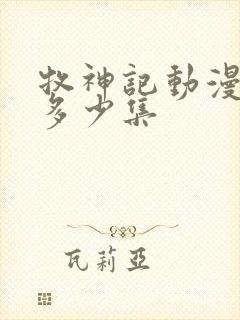 牧神記動漫
多少集
瓦莉亞